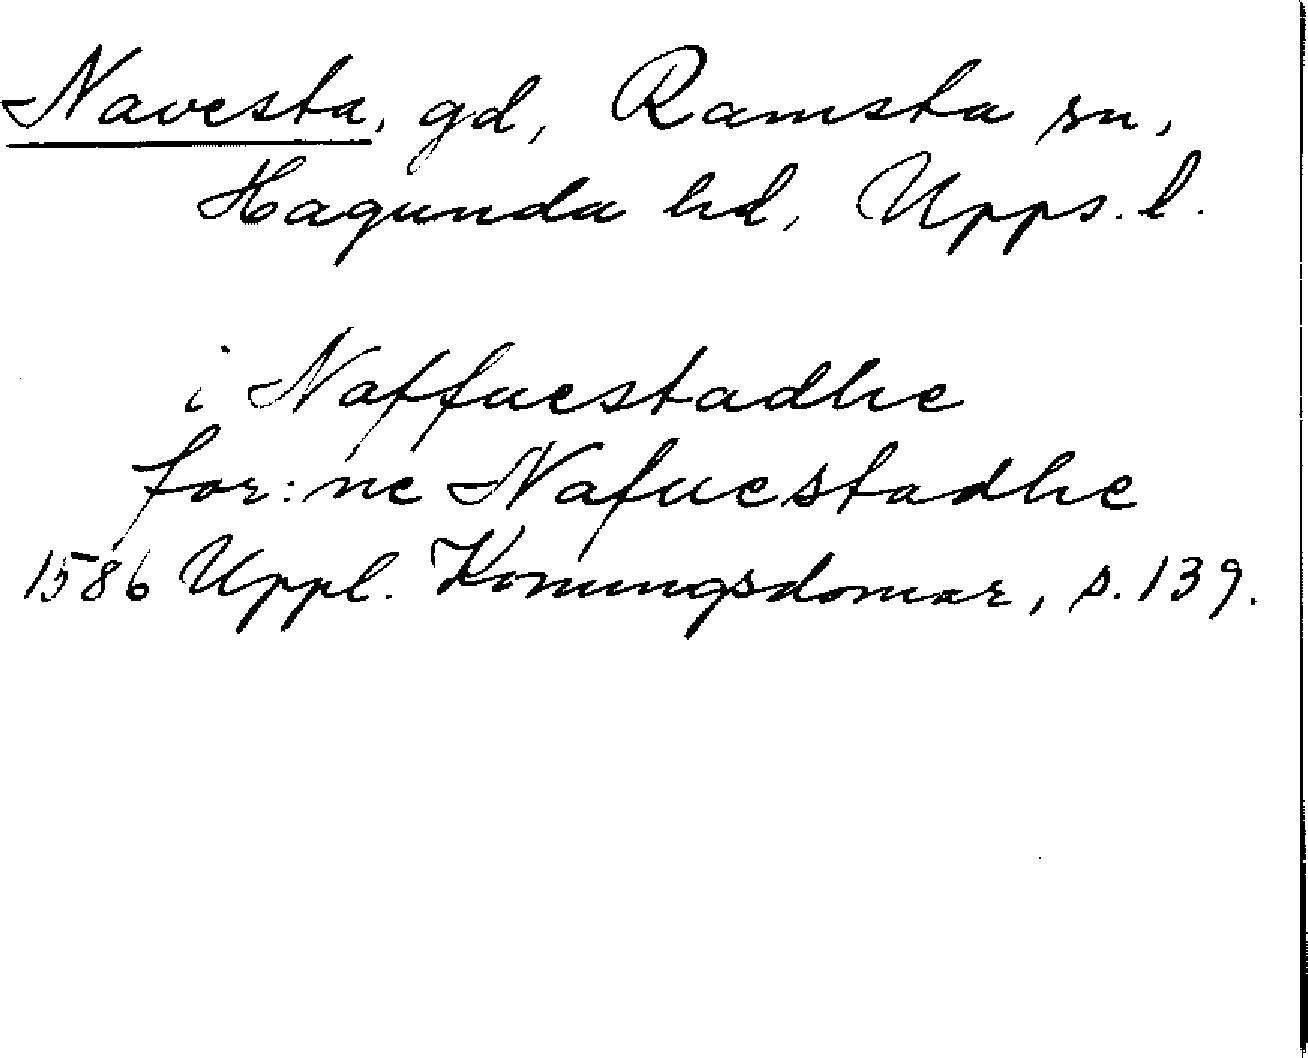 Navesta, gd, Ramsta sn,
Hagunda hd, Upps. l.
i Naffuestadhe
for:ne Nafuestadhe
1586 Uppl. Konungsdomar, s. 139.